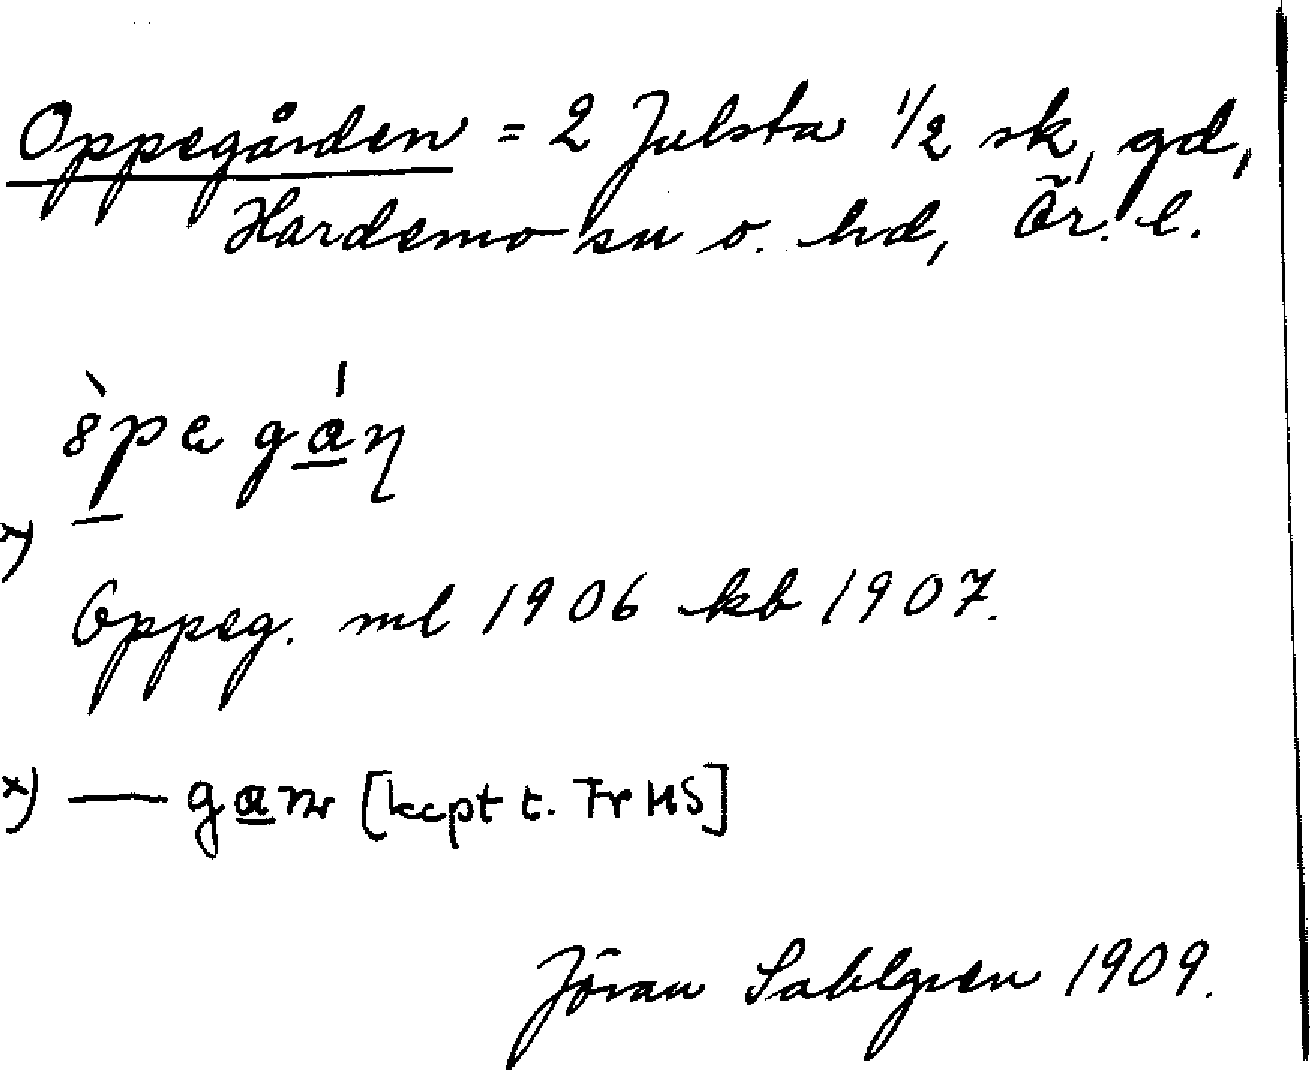 Oppegården = 2 Julsta 1/2 sk, gd,
Hardemo sn o. hd, Ör. l.
Oppeg. ml 1906 kb 1907.
x) — [kcpt t. Fr HS]
Jöran Sahlgren 1909.